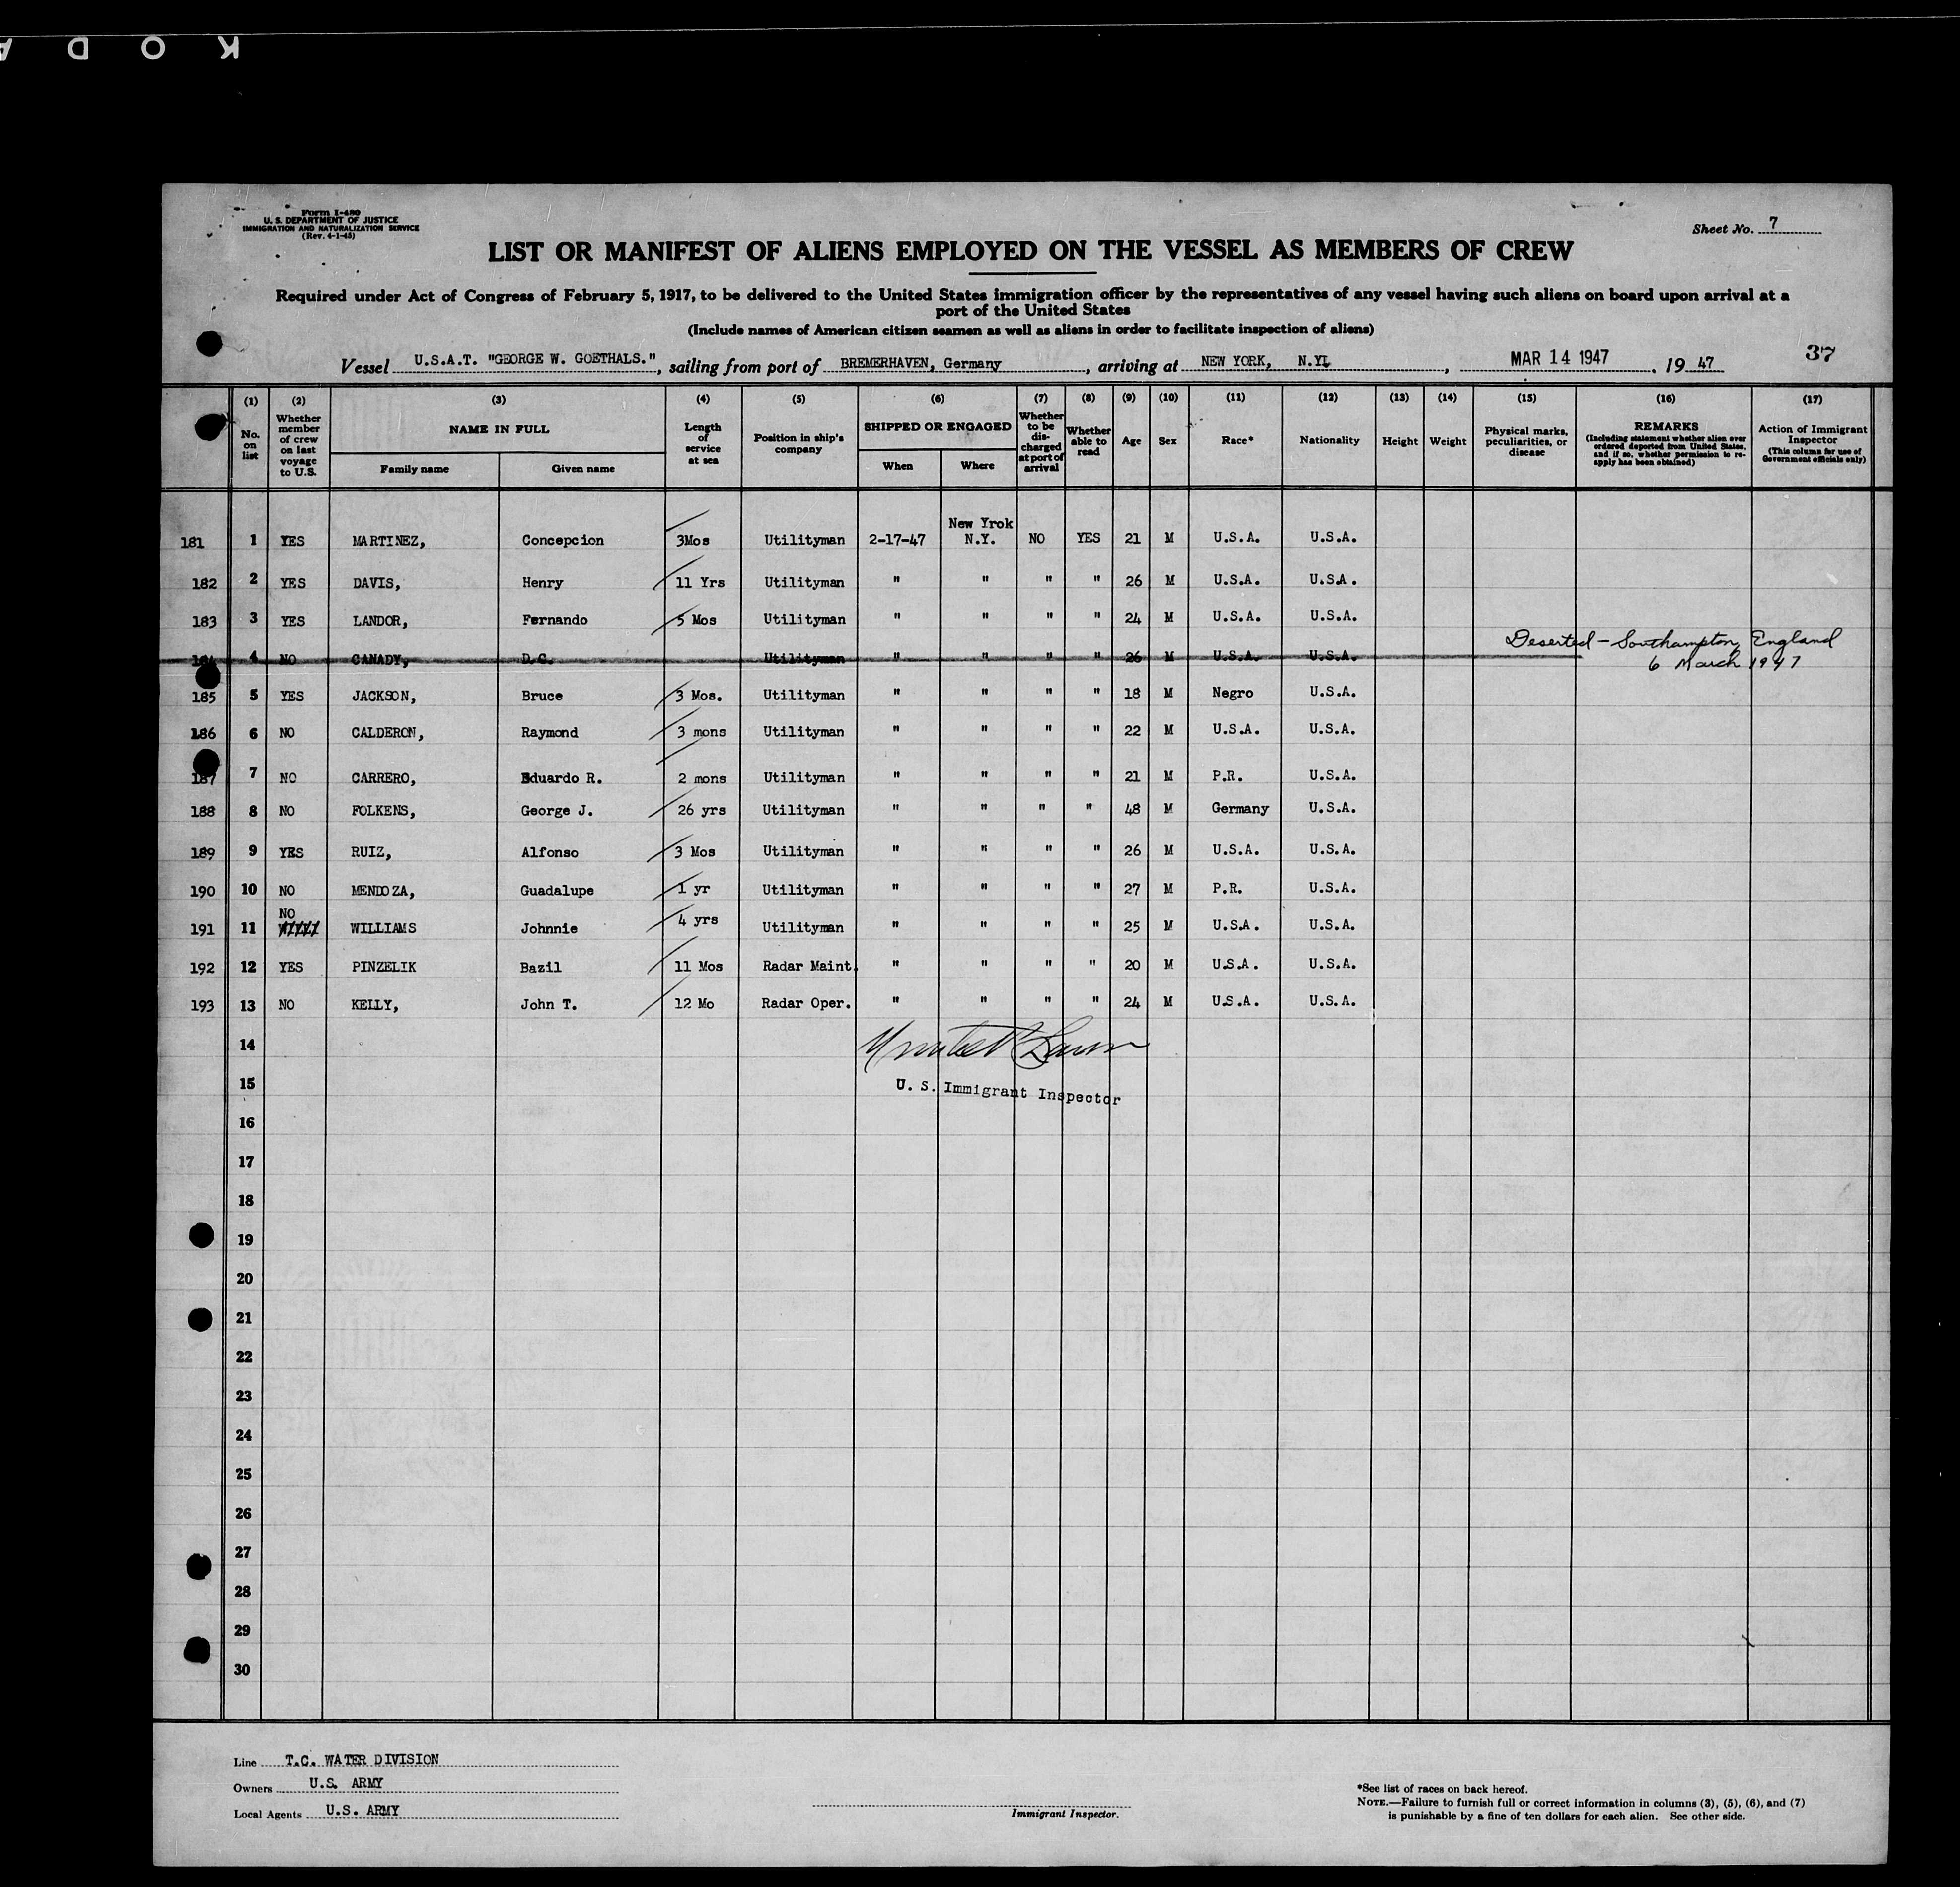 K O D A
Form I-480
U. S. DEPARTMENT OF JUSTICE
IMMIGRATION AND NATURALIZATION SERVICE
(Rev. 4-1-45)
Sheet No. 7
LIST OR MANIFEST OF ALIENS EMPLOYED ON THE VESSEL AS MEMBERS OF CREW
Required under Act of Congress of February 5, 1917, to be delivered to the United States immigration officer by the representatives of any vessel having such aliens on board upon arrival at a
port of the United States
(Include names of American citizen seamen as well as aliens in order to facilitate inspection of aliens)
37
Vessel U.S.A.T. "GEORGE W. GOETHALS.", sailing from port of BREMERHAVEN, Germany, arriving at NEW YORK, N.Y., MAR 14 1947, 19 47
(1) No. on list (2) Whether member of crew on last voyage to U.S. (3) NAME IN FULL Family name Given name (4) Length of service at sea (5) Position in ship's company (6) SHIPPED OR ENGAGED When Where (7) Whether to be discharged at port of arrival (8) Whether able to read (9) Age (10) Sex (11) Race* (12) Nationality (13) Height (14) Weight (15) Physical marks, peculiarities, or disease (16) REMARKS (Including statement whether alien ever ordered deported from United States, and if so, whether permission to re-apply has been obtained) (17) Action of Immigrant Inspector (This column for use of Government officials only)
181 1 YES MARTINEZ, Concepcion 3Mos Utilityman 2-17-47 New Yrok N.Y. NO YES 21 M U.S.A. U.S.A.
182 2 YES DAVIS, Henry 11 Yrs Utilityman " " " " 26 M U.S.A. U.S.A.
183 3 YES LANDOR, Fernando 5 Mos Utilityman " " " " 24 M U.S.A. U.S.A.
184 4 NO CANADY, D.C. Utilityman " " " " 26 M U.S.A. U.S.A. Deserted - Southampton, England
6 March 1947
185 5 YES JACKSON, Bruce 3 Mos. Utilityman " " " " 18 M Negro U.S.A.
186 6 NO CALDERON, Raymond 3 mons Utilityman " " " " 22 M U.S.A. U.S.A.
187 7 NO CARRERO, Eduardo R. 2 mons Utilityman " " " " 21 M P.R. U.S.A.
188 8 NO FOLKENS, George J. 26 yrs Utilityman " " " " 48 M Germany U.S.A.
189 9 YES RUIZ, Alfonso 3 Mos Utilityman " " " " 26 M U.S.A. U.S.A.
190 10 NO MENDOZA, Guadalupe 1 yr Utilityman " " " " 27 M P.R. U.S.A.
191 11 NO WILLIAMS Johnnie 4 yrs Utilityman " " " " 25 M U.S.A. U.S.A.
192 12 YES PINZELIK Bazil 11 Mos Radar Maint. " " " " 20 M U.S.A. U.S.A.
193 13 NO KELLY, John T. 12 Mo Radar Oper. " " " " 24 M U.S.A. U.S.A.
14
15 U. S. Immigrant Inspector
16
17
18
19
20
21
22
23
24
25
26
27
28
29
30
Line T.C. WATER DIVISION
Owners U.S. ARMY
Local Agents U.S. ARMY
Immigrant Inspector.
*See list of races on back hereof.
NOTE.—Failure to furnish full or correct information in columns (3), (5), (6), and (7)
is punishable by a fine of ten dollars for each alien. See other side.